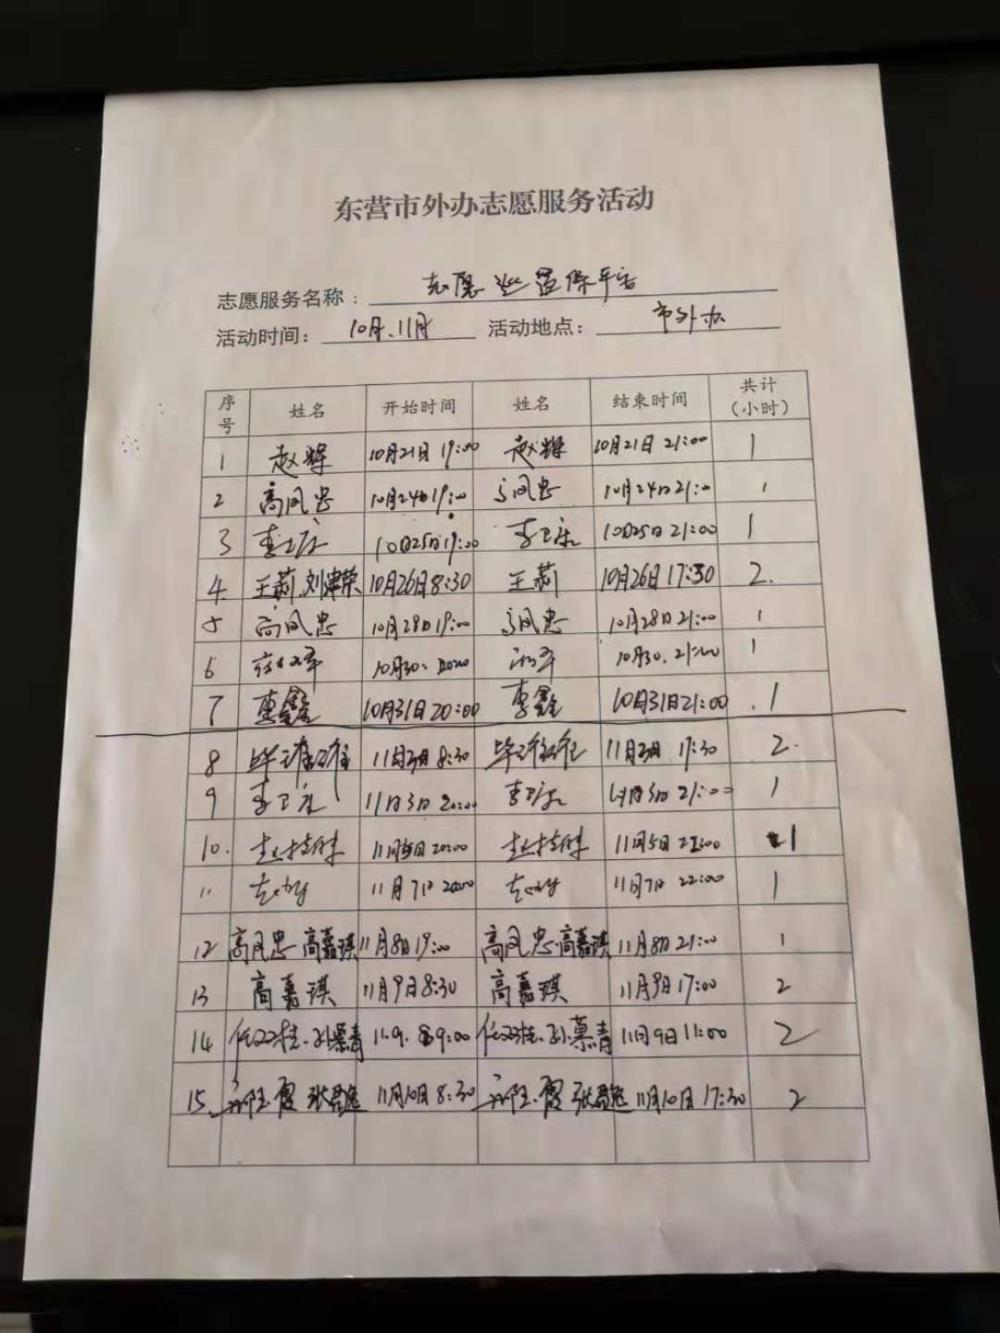 东营市外办志愿服务活动
志愿服务名称：志愿 值保平安
活动时间：10月、11月 活动地点：市外办
序号 姓名 开始时间 姓名 结束时间 共计（小时）
1 赵辉 10月21日 19:00 赵辉 10月21日 21:00 1
2 高凤忠 10月24日19:00 高凤忠 10月24日21:00 1
3 李卫东 10月25日19:00 李卫东 10月25日 21:00 1
4. 王莉.刘 荣 10月26日8:30 王莉 10月26日 17:30 2.
5 高凤忠 10月28日19:00 高凤忠 10月28日21:00 1
6 10月30. 2000 10月30. 21:00 1
7 李鑫 10月31日 20:00 李鑫 10月31日21:00 1
8 毕 11月3日 8:30 毕 11月3日 17:30 2.
9 李卫东 11月3日 20:00 李卫东 11月3日 21:00 1
10. 11月5日 20:00 11月5日 1
11 11月7日 11月7日 22:00 1
12 高凤忠 高嘉琪 11月8日19:00 高凤忠.高嘉琪 11月8日21:00 1
13 高嘉琪 11月9日8:30 高嘉琪 11月9日17:00 2
14 任双桂.孙慕青 11.9. 9:00 任双桂.孙慕青 11月9日11:00 2
15. 霞 张 11月10日 8:30 霞 张 11月10日 17:30 2